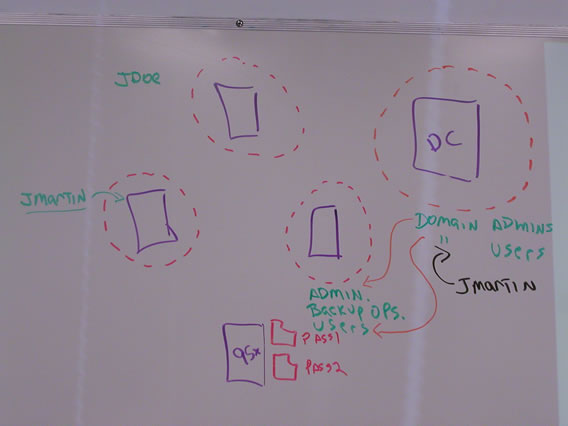 JDoe
DC
JMARTIN
DOMAIN ADMINS
" USERS
JMARTIN
ADMIN.
BACKUP OPS.
USERS
PASS1
PASS2